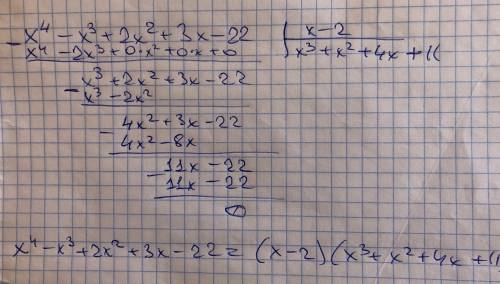 - x⁴ - x³ + 2x² + 3x - 22 | x - 2
x⁴ - 2x³ + 0·x² + 0·x + 0 | x³ + x² + 4x + 11
- x³ + 2x² + 3x - 22
x³ - 2x²
- 4x² + 3x - 22
4x² - 8x
- 11x - 22
11x - 22
0
x⁴ - x³ + 2x² + 3x - 22 = (x - 2)(x³ + x² + 4x + 11